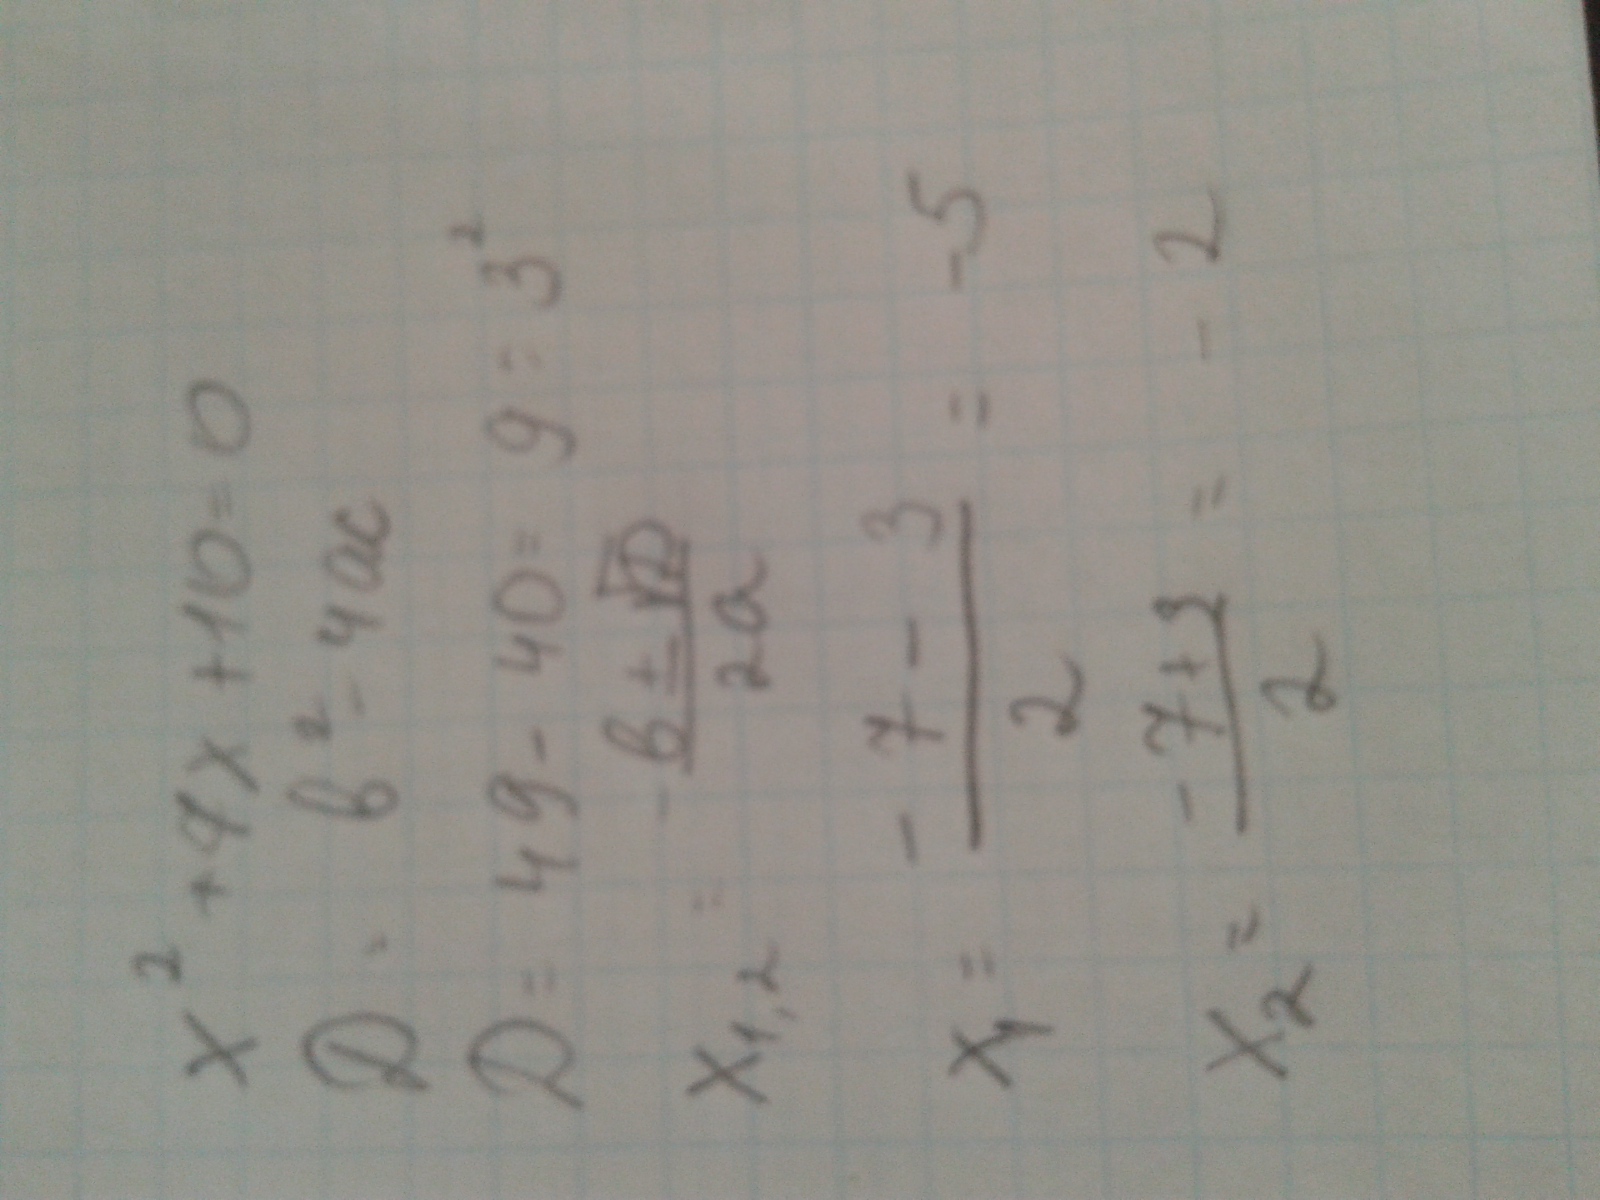 x² + 7x + 10 = 0
D = b² - 4ac
D = 49 - 40 = 9 = 3²
x₁,₂ = (-b ± √D) / 2a
x₁ = (-7 - 3) / 2 = -5
x₂ = (-7 + 3) / 2 = -2